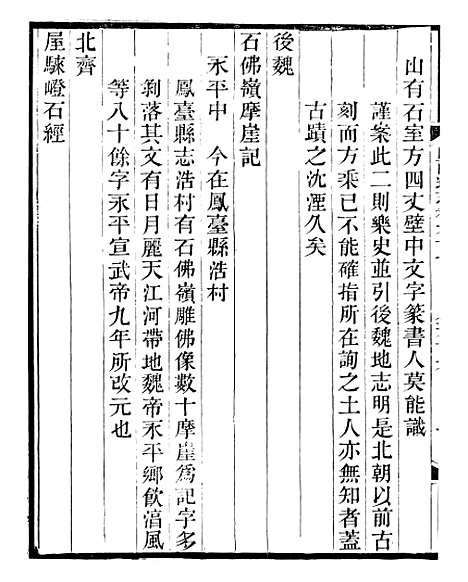 山有石室方四丈壁中文字篆書人莫能識
謹案此二則樂史並引後魏地志明是北朝以前古
刻而方乘已不能確指所在詢之土人亦無知者蓋
古蹟之沈湮久矣
後魏
石佛嶺摩崖記
永平中　今在鳳臺縣浩村
鳳臺縣志浩村有石佛嶺雕佛像數十摩崖爲記字多
剝落其文有日月麗天江河帶地魏帝永平鄉飲滈風
等八十餘字永平宣武帝九年所改元也
北齊
屋騋嶝石經